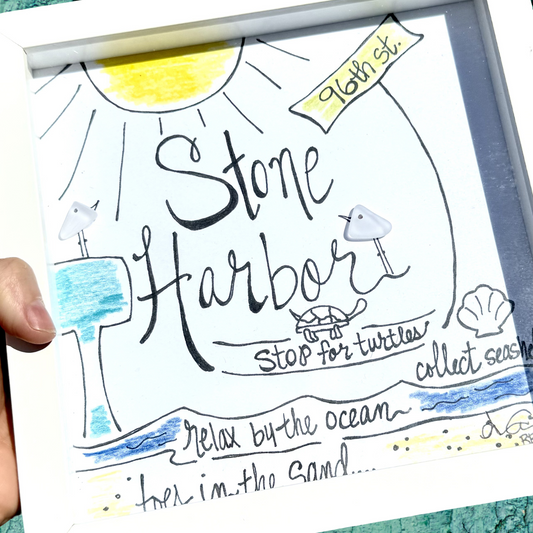 96th st.
Stone
Harbor
Stop for turtles
collect seashe
relax by the ocean
toes in the sand....